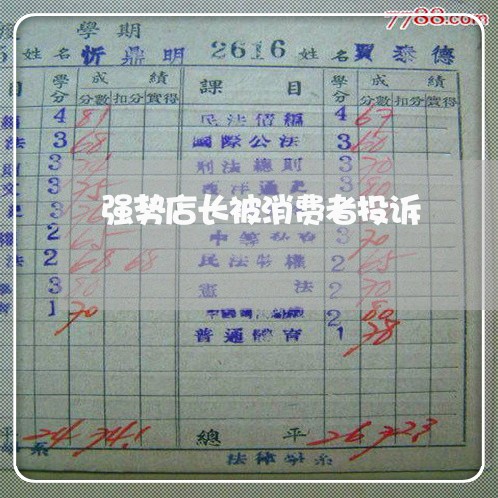 7788.com
學期
姓名 忻鼎明 2616 姓名 賈泰德
目 學分 成績 課目 學分 成績
分數 扣分 實得 分數 扣分 實得
4 81 民法債編 4 67
法 3 68 國際公法 3 60
3 刑法總則 3 70
文 3 75 西洋通史 3 80
强势店长被消费者投诉
2 65 3 70
法 2 68 68 民法物權 2 65
3 80 憲法 2 70
1 70 2 80
普通體育 1 78
平 24 74.1 總平 26 72.3
系 法律學系